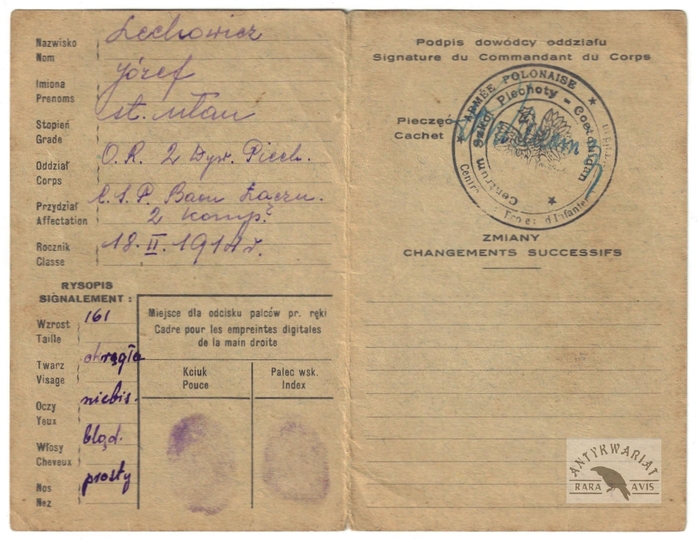 Nazwisko
Nom
Lechowicz
Imiona
Prenoms
Józef
Stopień
Grade
st. ułan
Oddział
Corps
O.R. 2 Dyw. Piech.
Przydział
Affectation
C.S.P. Baon Łączn.
2 Komp.
Rocznik
Classe
18.II.1914 r.
RYSOPIS
SIGNALEMENT :
Wzrost
Taille
161
Twarz
Visage
okrągła
Oczy
Yeux
niebis.
Włosy
Cheveux
bląd.
Nos
Nez
prosty
Miejsce dla odcisku palców pr. ręki
Cadre pour les empreintes digitales
de la main droite
Kciuk
Pouce
Palec wsk.
Index
Podpis dowódcy oddziału
Signature du Commandant du Corps
Pieczęć
Cachet
ARMÉE POLONAISE
Centrum Szkol. Piechoty - Coetquidan
d'Infanterie
ZMIANY
CHANGEMENTS SUCCESSIFS
ANTYKWARIAT
RARA AVIS